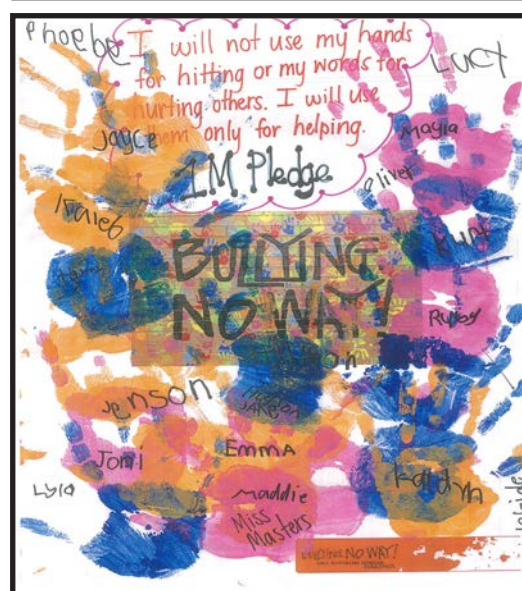 Phoebe
I will not use my hands
for hitting or my words for
hurting others. I will use
them only for helping.
1M Pledge
Lucy
Jayce
Mayla
Oliver
Kaleb
Kurt
BULLYING
NO WAY!
Ruby
Jenson
Jake
Emma
Jomi
Lyla
Maddie
Miss
Masters
Kaidyn
BULLYING. NO WAY!